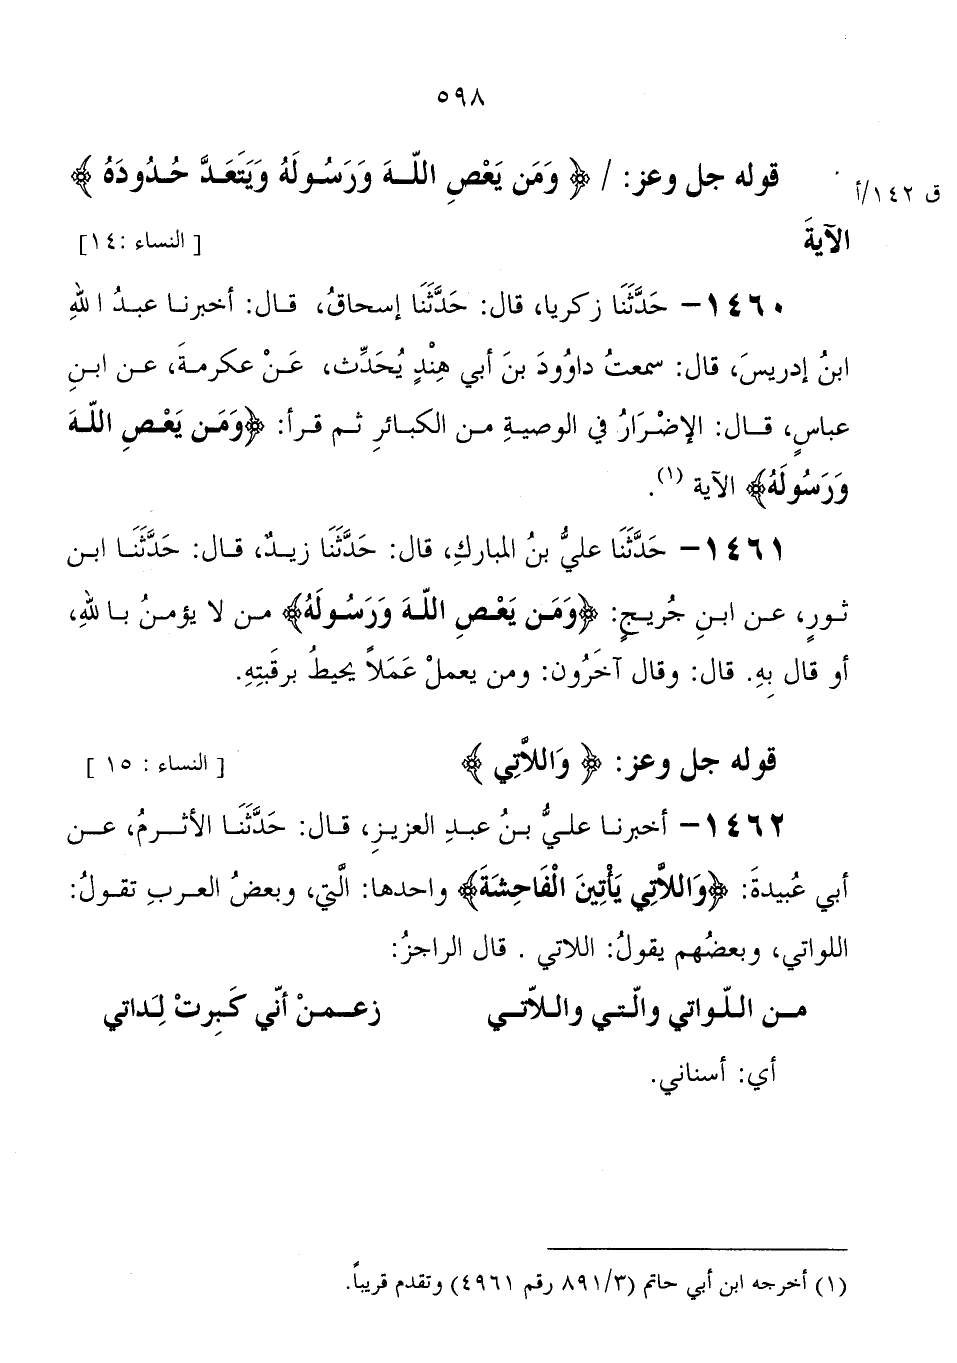 ٥٩٨
قوله جل وعز: / ﴿ وَمَن يَعْصِ اللّهَ وَرَسُولَهُ وَيَتَعَدَّ حُدُودَهُ ﴾
ق ١٤٢/أ
الآيةَ [ النساء :١٤]
١٤٦٠– حَدَّثَنَا زكريا، قال: حَدَّثَنَا إسحاقُ، قال: أخبرنا عبدُ اللهِ
ابنُ إدريسَ، قال: سمعتُ داوُودَ بنَ أبي هِنْدٍ يُحَدِّث، عَنْ عكرمةَ، عن ابنِ
عباسٍ، قال: الإضْرَارُ في الوصيةِ من الكبائرِ ثم قرأ: ﴿وَمَن يَعْصِ اللّهَ
وَرَسُولَهُ﴾ الآية (١).
١٤٦١– حَدَّثَنَا عليُّ بنُ المباركِ، قال: حَدَّثَنَا زيدٌ، قال: حَدَّثَنَا ابن
ثورٍ، عن ابنِ جُريجٍ: ﴿وَمَن يَعْصِ اللّهَ وَرَسُولَهُ﴾ من لا يؤمنُ باللهِ،
أو قال بِهِ. قال: وقال آخَرُون: ومن يعملْ عَمَلاً يحيطُ برقبَتِهِ.
قوله جل وعز: ﴿ وَاللاَّتِي ﴾ [ النساء : ١٥ ]
١٤٦٢– أخبرنا عليُّ بنُ عبدِ العزيزِ، قال: حَدَّثَنَا الأثرمُ، عن
أبي عُبيدةَ: ﴿وَاللاَّتِي يَأْتِينَ الْفَاحِشَةَ﴾ واحدها: الَّتي، وبعضُ العربِ تقولُ:
اللواتي، وبعضُهم يقولُ: اللاتي . قال الراجزُ:
من اللّواتي والّتي واللاّتي زعمنْ أنّي كَبِرتْ لِدَاتي
أي: أسناني.
(١) أخرجه ابن أبي حاتم (٨٩١/٣ رقم ٤٩٦١) وتقدم قريباً.